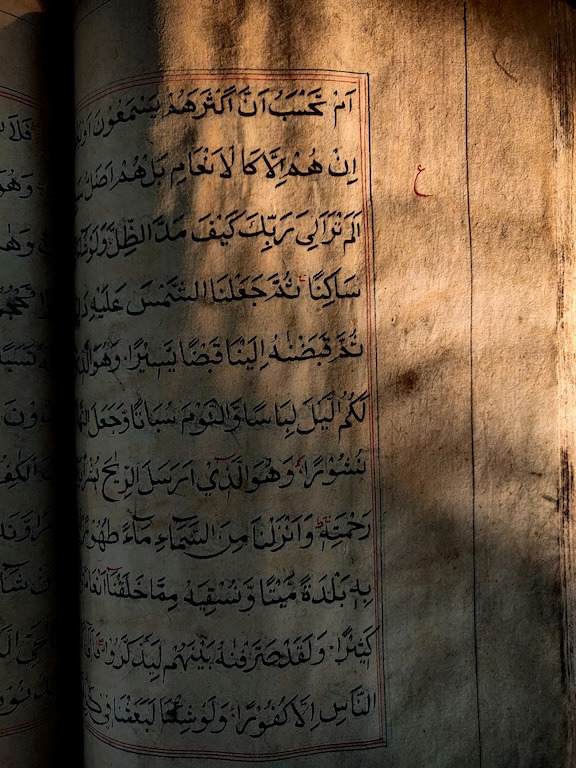 اَمْ تَحْسَبُ اَنَّ اَكْثَرَهُمْ يَسْمَعُوْنَ
اِنْ هُمْ اِلَّا كَا لْاَنْعَامِ بَلْ هُمْ اَضَلُّ
ع
اَلَمْ تَرَ اِلٰى رَبِّكَ كَيْفَ مَدَّ الظِّلَّ
سَاكِنًا ثُمَّ جَعَلْنَا الشَّمْسَ عَلَيْهِ
ثُمَّ قَبَضْنٰهُ اِلَيْنَا قَبْضًا يَّسِيْرًا وَهُوَ
لَكُمُ الَّيْلَ لِبَاسًا وَّالنَّوْمَ سُبَاتًا وَّجَعَلَ
نُشُوْرًا وَهُوَ الَّذِيْ اَرْسَلَ الرِّيٰحَ
رَحْمَتِهٖ وَاَنْزَلْنَا مِنَ السَّمَآءِ مَآءً
بِهٖ بَلْدَةً مَّيْتًا وَّنُسْقِيَهٗ مِمَّا خَلَقْنَا
كَثِيْرًا وَلَقَدْ صَرَّفْنٰهُ بَيْنَهُمْ لِيَذَّكَّرُوْا
النَّاسِ اِلَّا كُفُوْرًا وَلَوْ شِئْنَا لَبَعَثْنَا فِيْ